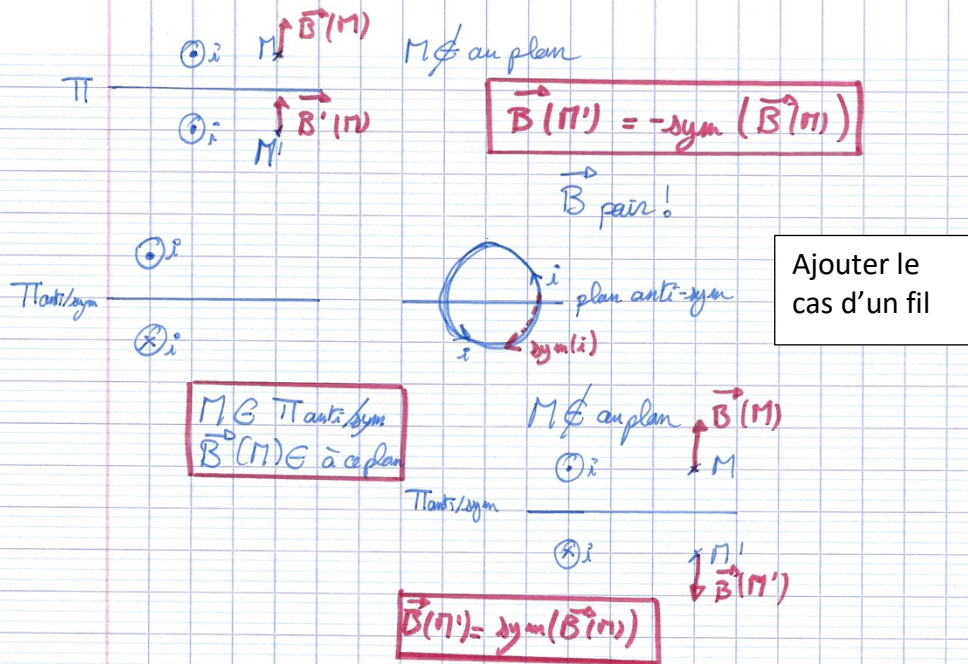 ⊙ i M B⃗(M) M ∉ au plan
Π
⊙ i M' B⃗'(M)
B⃗(M') = -sym (B⃗(M))
B⃗ pair !
⊙ i
Π anti/sym
⊗ i
i
plan anti-sym
i sym(i)
Ajouter le
cas d'un fil
M ∈ Π anti/sym
B⃗(M) ∈ à ce plan
M ∉ au plan B⃗(M)
⊙ i M
Π anti/sym
⊗ i M'
B⃗(M')
B⃗(M') = sym(B⃗(M))